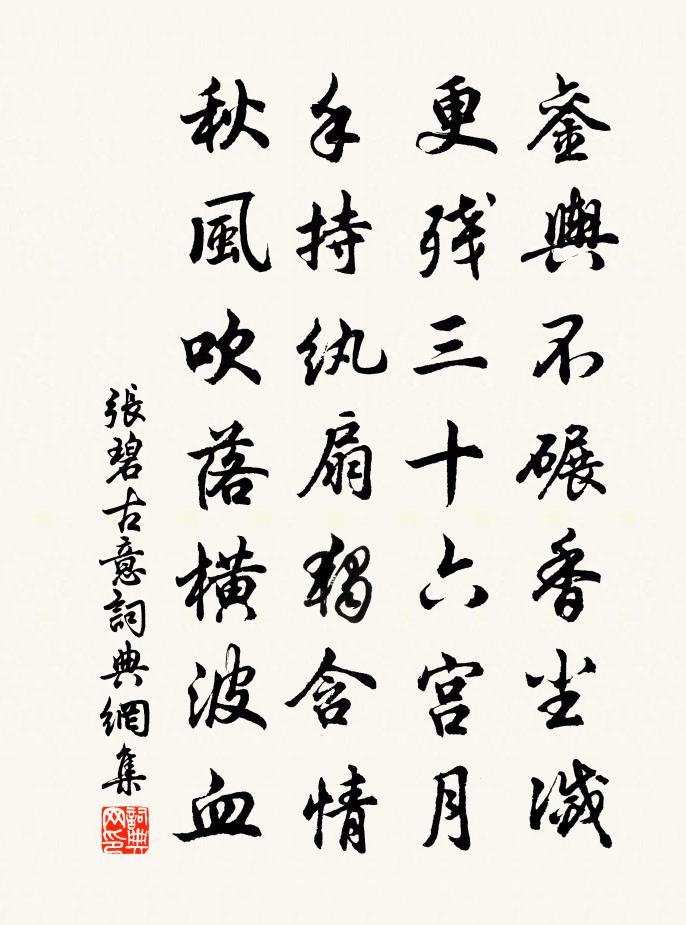 銮輿不碾香尘滅
更残三十六宫月
手持纨扇獨含情
秋風吹落橫波血
張碧古意詞典網集
詞典网印